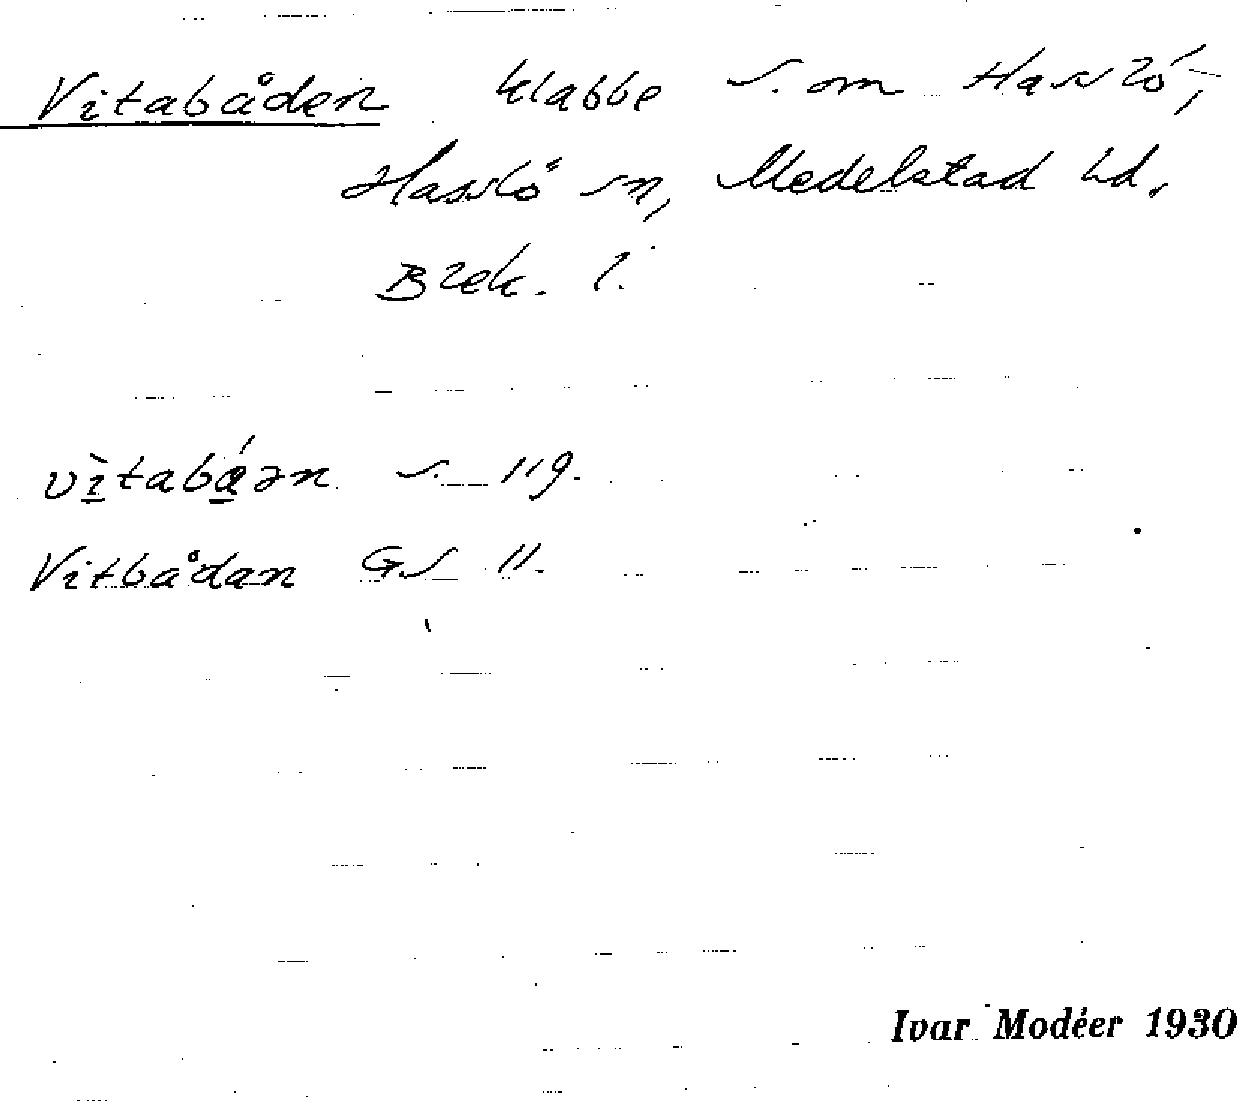 Vitabåden klabbe S. om Hasslö,
Hasslö sn, Medelstad hd.
Blek. l.
vi̲tabá̲ən s. 119.
Vitbådan GS 11.
Ivar Modéer 1930